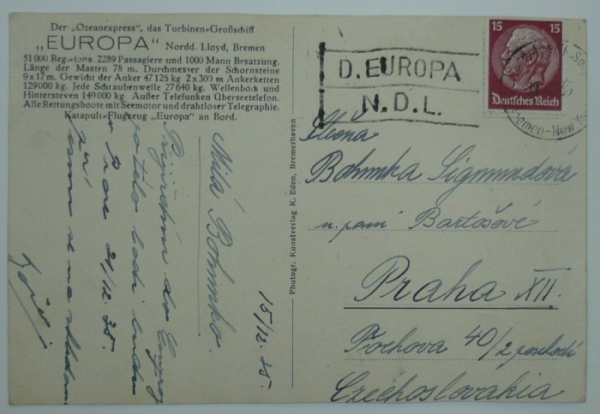 Der „Ozeanexpress", das Turbinen-Großschiff
„EUROPA" Nordd. Lloyd, Bremen
51 000 Reg.-tons. 2289 Passagiere und 1000 Mann Besatzung.
Länge der Masten 78 m. Durchmesser der Schornsteine
9 x 17 m. Gewicht der Anker 47 126 kg 2 x 300 m Ankerketten
129 000 kg. Jede Schraubenwelle 27 640 kg. Wellenbock und
Hintersteven 149 000 kg. Außer Telefunken Überseetelefon.
Alle Rettungsboote mit Seemotor und drahtloser Telegraphie.
Katapult-Flugzeug „Europa" an Bord.
15 15
Deutsches Reich
Bremen-New
D. EUROPA
N. D. L.
15/12. 35.
Milá Bohunko.
Přijíždím do
lodi
21/12. 35.
Photogr. Kunstverlag K. Eden, Bremerhaven
Bohunka Sigmundová
u paní Bartošové
Praha XII.
Fochova 40/2 poschodí
Czechoslovakia